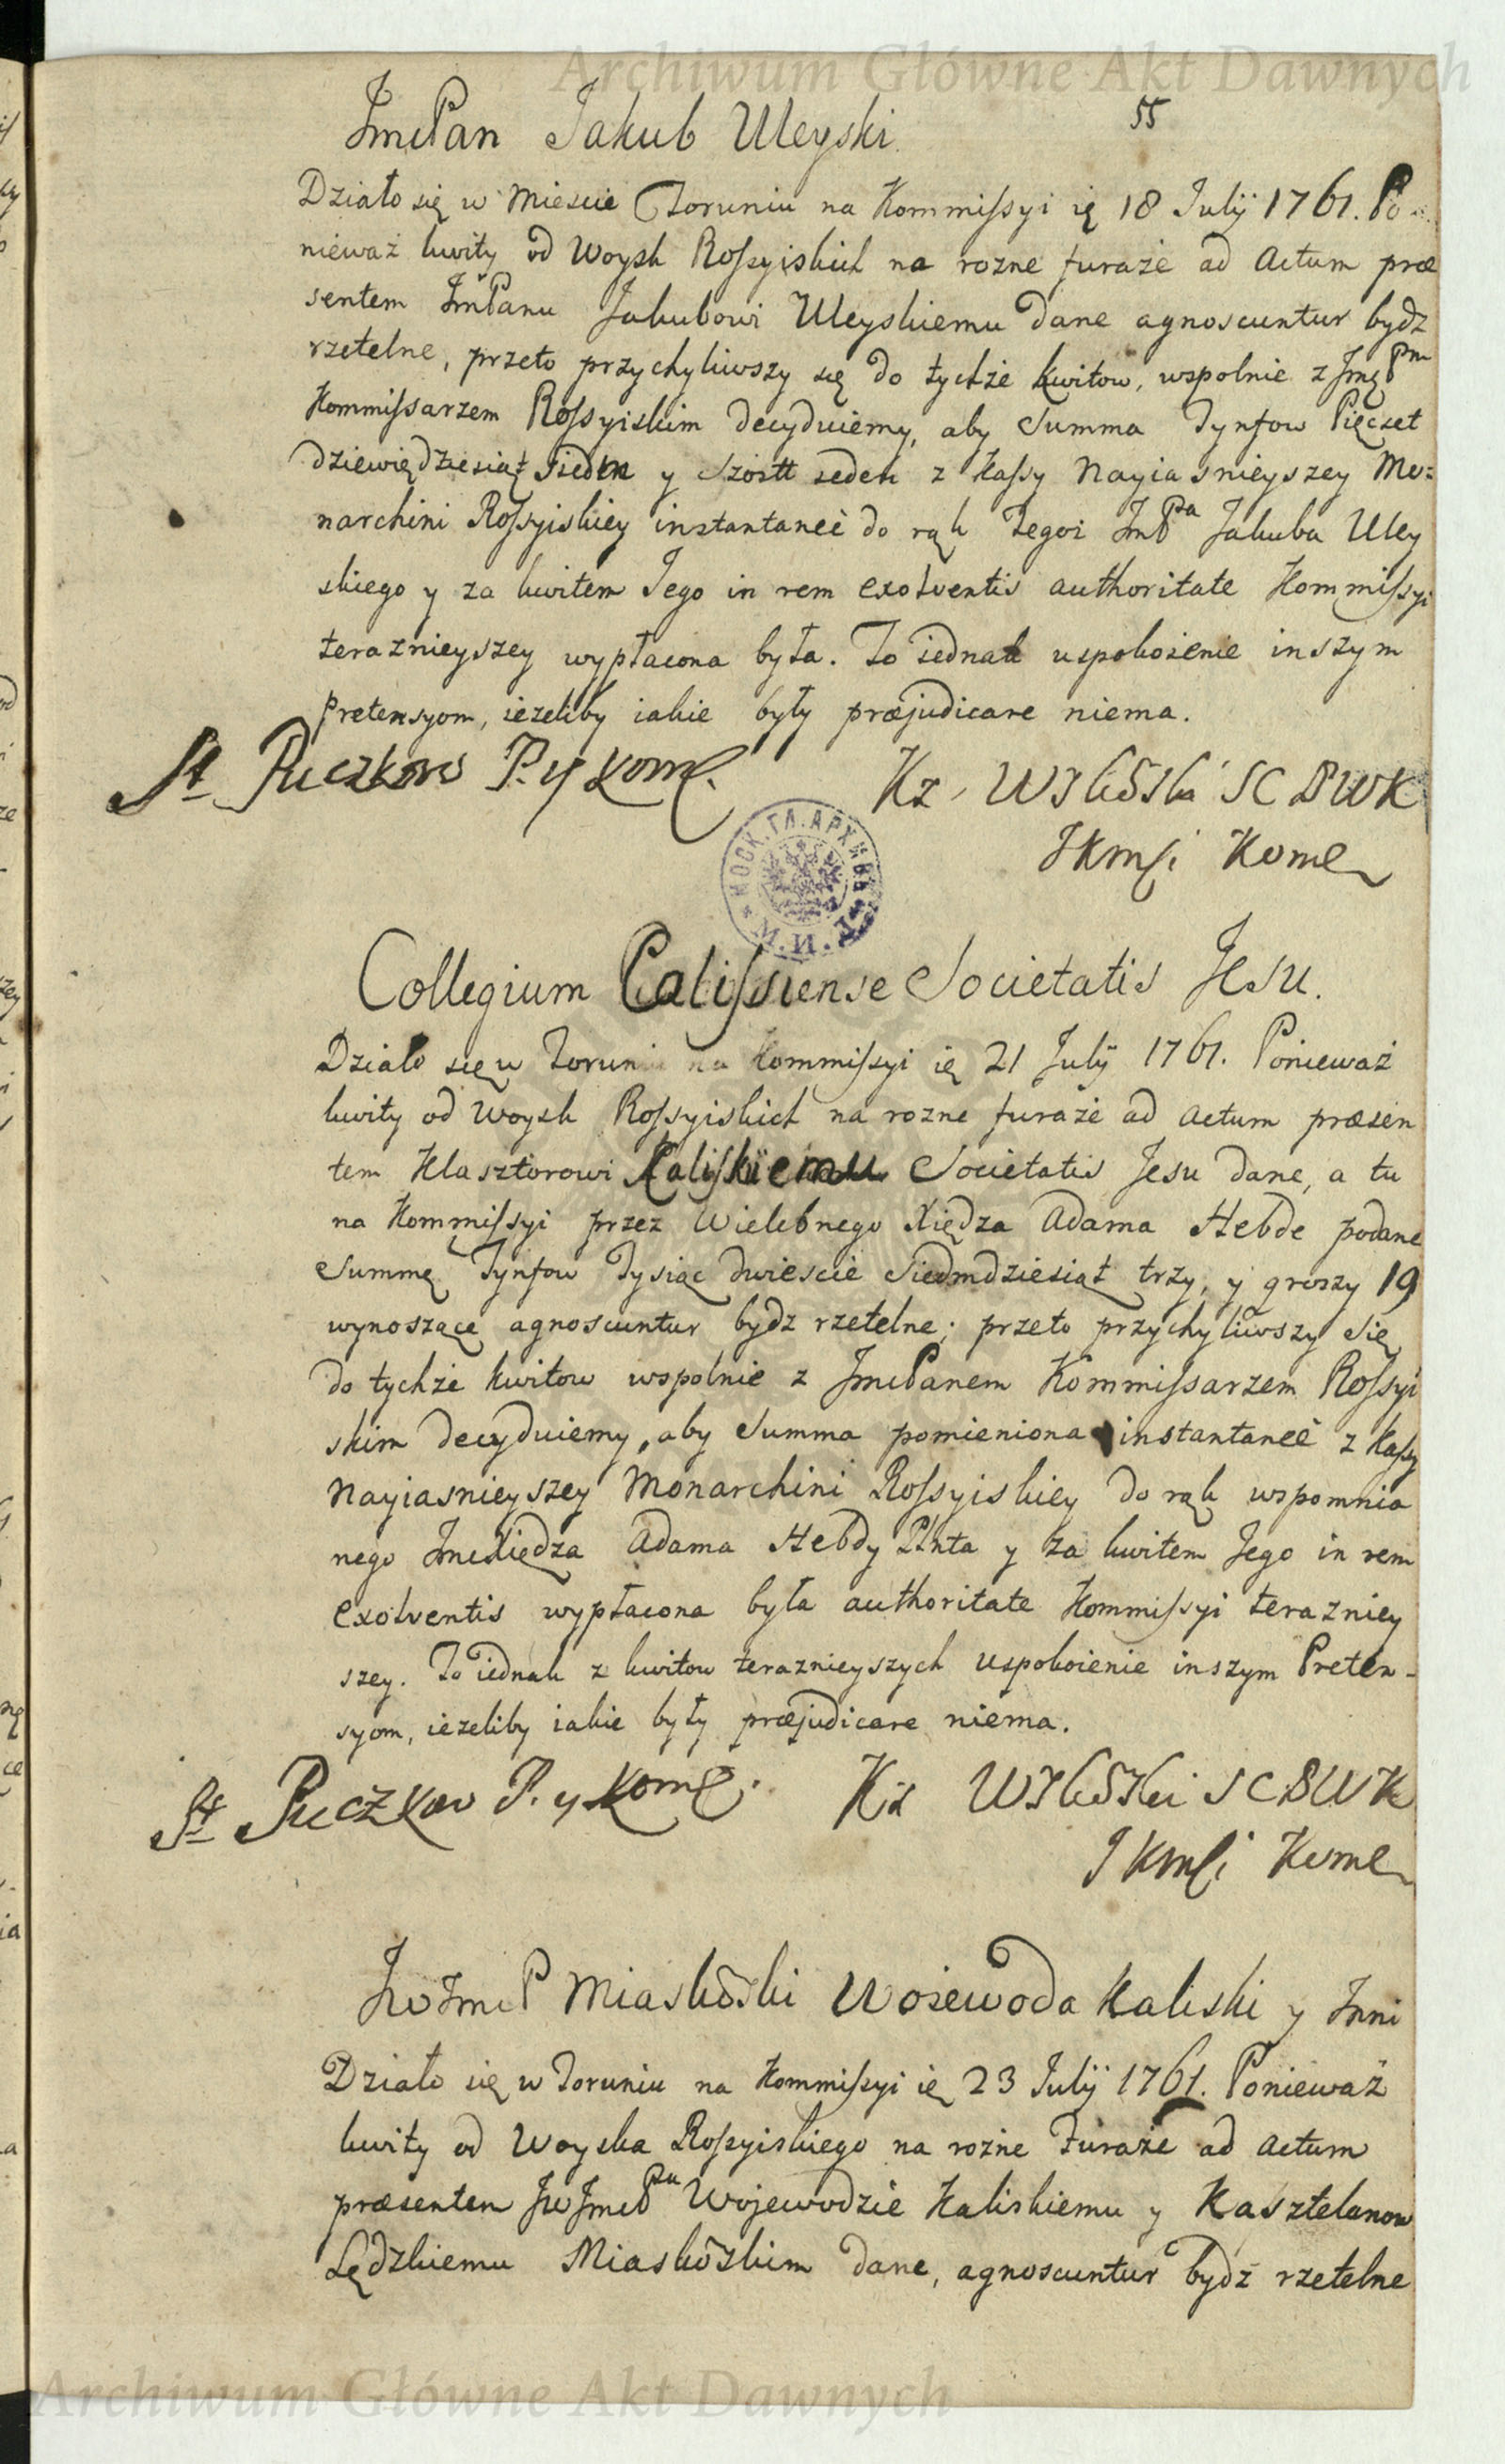 Archiwum Główne Akt Dawnych
55
JmcPan Jakub Uleyski
Działo się w Miescie Toruniu na Kommissyi ię 18 Julij 1761. Po
nieważ kwity od Woysk Rossyiskich na rozne furaże ad Actum præ
sentem JmPanu Jakubowi Uleyskiemu dane agnoscuntur bydz
rzetelne, przeto przychyliwszy się do tychże kwitow, wspolnie z Jmę Pm
Kommissarzem Rossyiskim decyduiemy, aby Summa Tynfow Pięcset
dziewiędziesiąt siedm y Szostt seden z Kassy Nayiasnieyszey Mo=
narchini Rossyiskiey instantaneè do rąk Tegoż JmPa Jakuba Uley
skiego y za kwitem Jego in rem exolventis authoritate Kommissyi
teraznieyszey wypłacona była. To iednak uspokoienie inszym
pretensyom, ieżeliby iakie były præjudicare niema.
St Puczkow P. y Kom.
Kz WSkoSki SC BWK
JKMsi Kome
МОСК. ГЛ. АРХИВЪ М. И. Д.
Collegium Calissiense Societatis Jesu.
Działo się w Toruniu na Kommissyi ię 21 Julij 1761. Ponieważ
kwity od Woysk Rossyiskich na rozne furaże ad Actum præsen
tem Klasztorowi Kaliskiemu Societatis Jesu dane, a tu
na Kommissyi przez Wielebnego Xiędza Adama Hebde podane
Summę Tynfow Tysiąc dwiescie Siedmdziesiąt trzy, y groszy 19
wynoszące agnoscuntur bydz rzetelne; przeto przychyliwszy Się
do tychże kwitow wspolnie z JmcPanem Kommissarzem Rossyi
skim decyduiemy, aby Summa pomieniona instantaneè z Kassy
Nayiasnieyszey Monarchini Rossyiskiey do rąk wspomnia
nego JmcXiędza Adama Hebdy Plnta y za kwitem Jego in rem
exolventis wypłacona była authoritate Kommissyi terazniey
szey. To iednak z kwitow teraznieyszych uspokoienie inszym Preten-
syom, ieżeliby iakie były præjudicare niema.
St Puczkow P. y Kom.
Kz WSkoSki SC BWK
JKMsi Kome
JwJmcP Miaskoski Woiewoda Kaliski y Inni
Działo się w Toruniu na Kommissyi ię 23 Julij 1761. Ponieważ
kwity od Woyska Rossyiskiego na rożne Furaże ad Actum
præsentem JwJmcPu Wojewodzie Kaliskiemu y Kasztelanow
Lędzkiemu Miaskoskim dane, agnoscuntur bydź rzetelne
Archiwum Główne Akt Dawnych